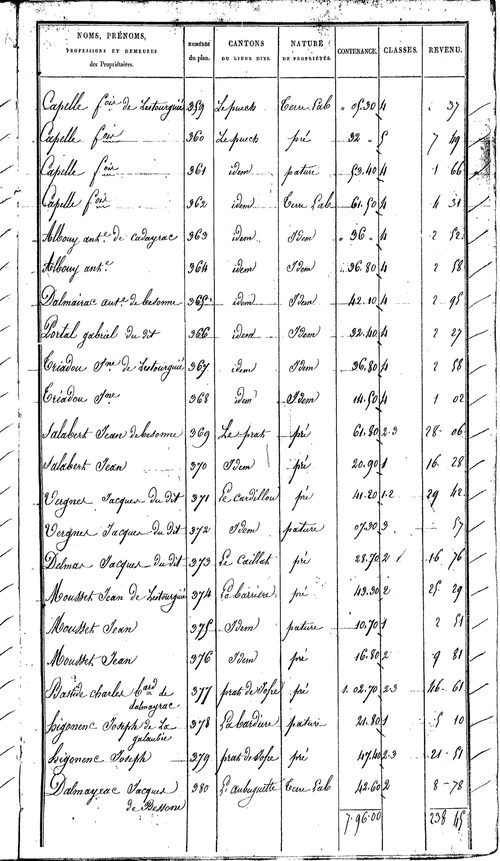 NOMS, PRÉNOMS, PROFESSIONS ET DEMEURES des Propriétaires. | NUMÉROS du plan. | CANTONS OU LIEUX DITS. | NATURE DE PROPRIÉTÉS. | CONTENANCE. | CLASSES. | REVENU.
Capelle fois de Lestourguié 359 Le puech Terre Lab 05.30 4 37
Capelle fois 360 Le puech pré 32 5 7 49
Capelle fois 361 idem pature 53.40 4 1 66
Capelle fois 362 idem Terre Lab 61.50 4 4 31
Albouy ant.e de Cadayrac 363 idem Idem 36 4 2 52
Albouy ant.e 364 idem Idem 36.80 4 2 58
Dalmairac ant.e de besonne 365 idem Idem 42.10 4 2 95
Portal gabriel du dit 366 idem Idem 32.40 4 2 27
Triadou Jne de Lestourguié 367 idem Idem 36.80 4 2 58
Triadou Jne 368 idem Idem 14.50 4 1 02
Salabert Jean de besonne 369 Le prat pré 61.80 2-3 28-06
Salabert Jean 370 Idem pré 20.90 1 16 28
Vergnes Jacques du dit 371 Le Cardillou pré 41.20 1-2 29 42
Vergnes Jacques du dit 372 Idem pature 07.30 3 57
Delmas Jacques du dit 373 Le Caillat pré 28.70 2 16 76
Mousset Jean de Lestourguié 374 La Carriere pré 43.30 2 25 29
Mousset Jean 375 Idem pature 10.70 1 2 51
Mousset Jean 376 Idem pré 16.80 2 9 81
Bastide charles Card de 377 prat de Tofre pré 1.02.70 2-3 46-61
dalmayrac
Ligonenc Joseph de La 378 La bardiere pature 21.80 1 5 10
galaubie
Ligonenc Joseph 379 prat de Tofre pré 47.40 2-3 21-51
Dalmayrac Jacques 380 L'aubuguette Terre Lab 42.60 2 8-78
de Bessone
7.96.00 238 45